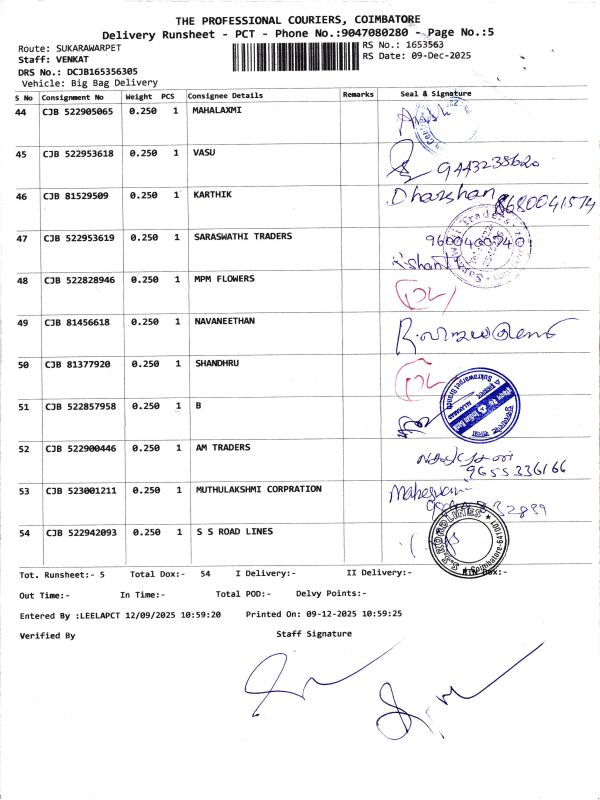 THE PROFESSIONAL COURIERS, COIMBATORE
Delivery Runsheet - PCT - Phone No.:9047080280 - Page No.:5
Route: SUKARAWARPET
RS No.: 1653563
Staff: VENKAT
RS Date: 09-Dec-2025
DRS No.: DCJB165356305
Vehicle: Big Bag Delivery
S No Consignment No Weight PCS Consignee Details Remarks Seal & Signature
44 CJB 522905065 0.250 1 MAHALAXMI
45 CJB 522953618 0.250 1 VASU 9443238620
46 CJB 81529509 0.250 1 KARTHIK Dharshan 8680041574
47 CJB 522953619 0.250 1 SARASWATHI TRADERS 9600400740
48 CJB 522828946 0.250 1 MPM FLOWERS
49 CJB 81456618 0.250 1 NAVANEETHAN
50 CJB 81377920 0.250 1 SHANDHRU
51 CJB 522857958 0.250 1 B
52 CJB 522900446 0.250 1 AM TRADERS 9655336166
53 CJB 523001211 0.250 1 MUTHULAKSHMI CORPRATION
54 CJB 522942093 0.250 1 S S ROAD LINES S.S. ROADLINES
Tot. Runsheet:- 5 Total Dox:- 54 I Delivery:- II Delivery:- RTN Dox:-
Out Time:- In Time:- Total POD:- Delvy Points:-
Entered By :LEELAPCT 12/09/2025 10:59:20 Printed On: 09-12-2025 10:59:25
Verified By Staff Signature